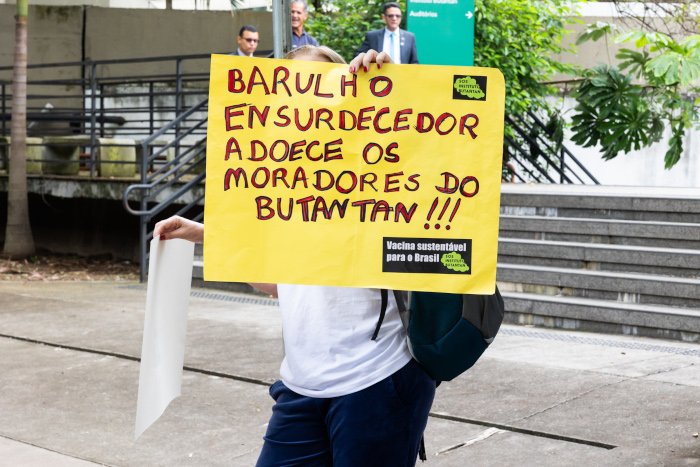 Instituto Butantan
Auditórios
BARULHO
ENSURDECEDOR
ADOECE OS
MORADORES DO
BUTANTAN!!!
SOS
INSTITUTO
BUTANTAN
Vacina sustentável
para o Brasil
SOS
INSTITUTO
BUTANTAN